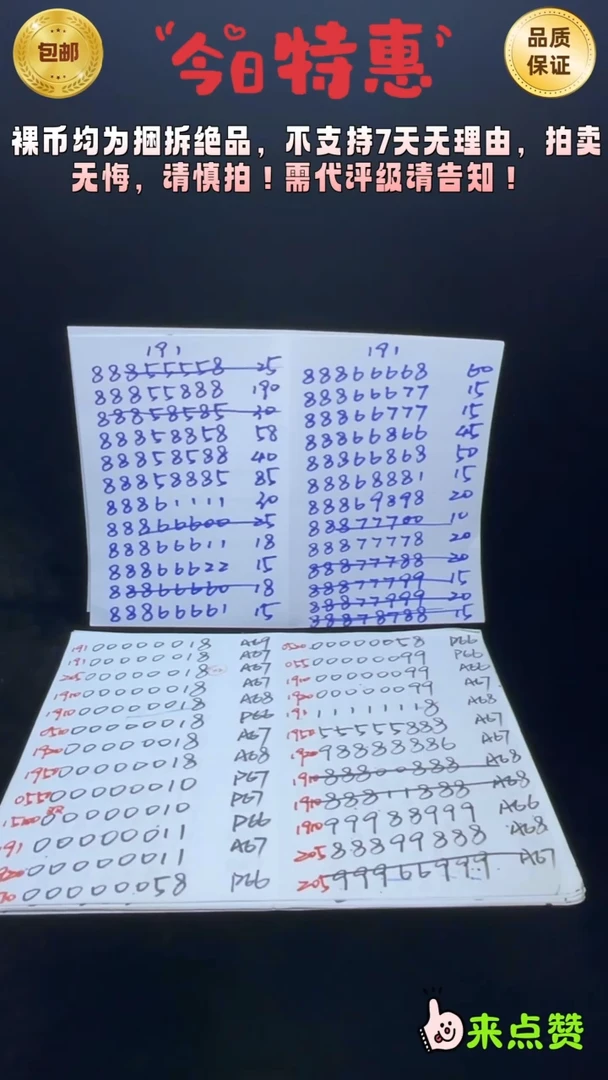 包邮
今日特惠
品质
保证
裸币均为捆拆绝品，不支持7天无理由，拍卖
无悔，请慎拍！需代评级请告知！
191
88855558 25
88855888 190
88858585 30
88858858 58
88858588 40
88858885 85
88861111 30
88866600 25
88866611 18
88866622 15
88866660 18
88866661 15
191
88866668 60
88866677 15
88866777 15
88866866 45
88866868 50
88868881 15
88869898 20
88877700 10
88877778 20
88877788 20
88877799 15
88877999 20
88878788 15
191 00000018 A69
191 00000018 A67
205 00000018 A67
1910 00000018 A67
1910 00000018 A68
0510 00000018 P66
1920 00000018 A67
1950 00000018 A68
0550 00000010 P67
00000010 P67
191 00000011 P66
00000011 A67
00000058 P66
0520 00000058 P66
055 00000099 P66
1910 00000099 A66
1920 00000099 A67
191 11111118 A68
1950 55555888 A67
1920 98888886 A67
1910 88800888 A68
1910 88811888 A68
1910 99988999 A66
205 88899888 A68
205 99966999 A67
来点赞